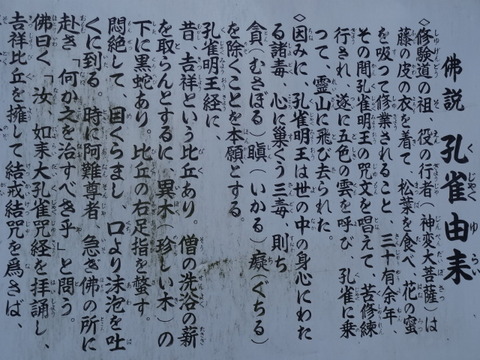 佛説 孔雀由来
◇修験道の祖、役の行者(神変大菩薩)は
藤の皮の衣を着て、松葉を食べ、花の蜜
を吸って修業されること、三十有余年、
その間孔雀明王の咒文を唱えて、苦修練
行され、遂に五色の雲を呼び、孔雀に乗
って、霊山に飛び去られた。
◇因みに、孔雀明王は世の中の身心にわた
る諸毒、心に巣くう三毒、則ち
貪(むさぼる)瞋(いかる)癡(ぐちる)
を除くことを本願とする。
孔雀明王経に、
昔、吉祥という比丘あり。僧の洗浴の薪
を取らんとするに異木(珍しい木)の
下に黒蛇あり。比丘の右足指を螫す
悶絶して、目くらまし 口より沫泡を吐
くに到る。時に阿難尊者、急ぎ佛の所に
赴き「何か之を治すべき乎」と問う。
佛曰く「汝、如来大孔雀咒経を拝誦し、
吉祥比丘を擁して結戒結咒を為さば、